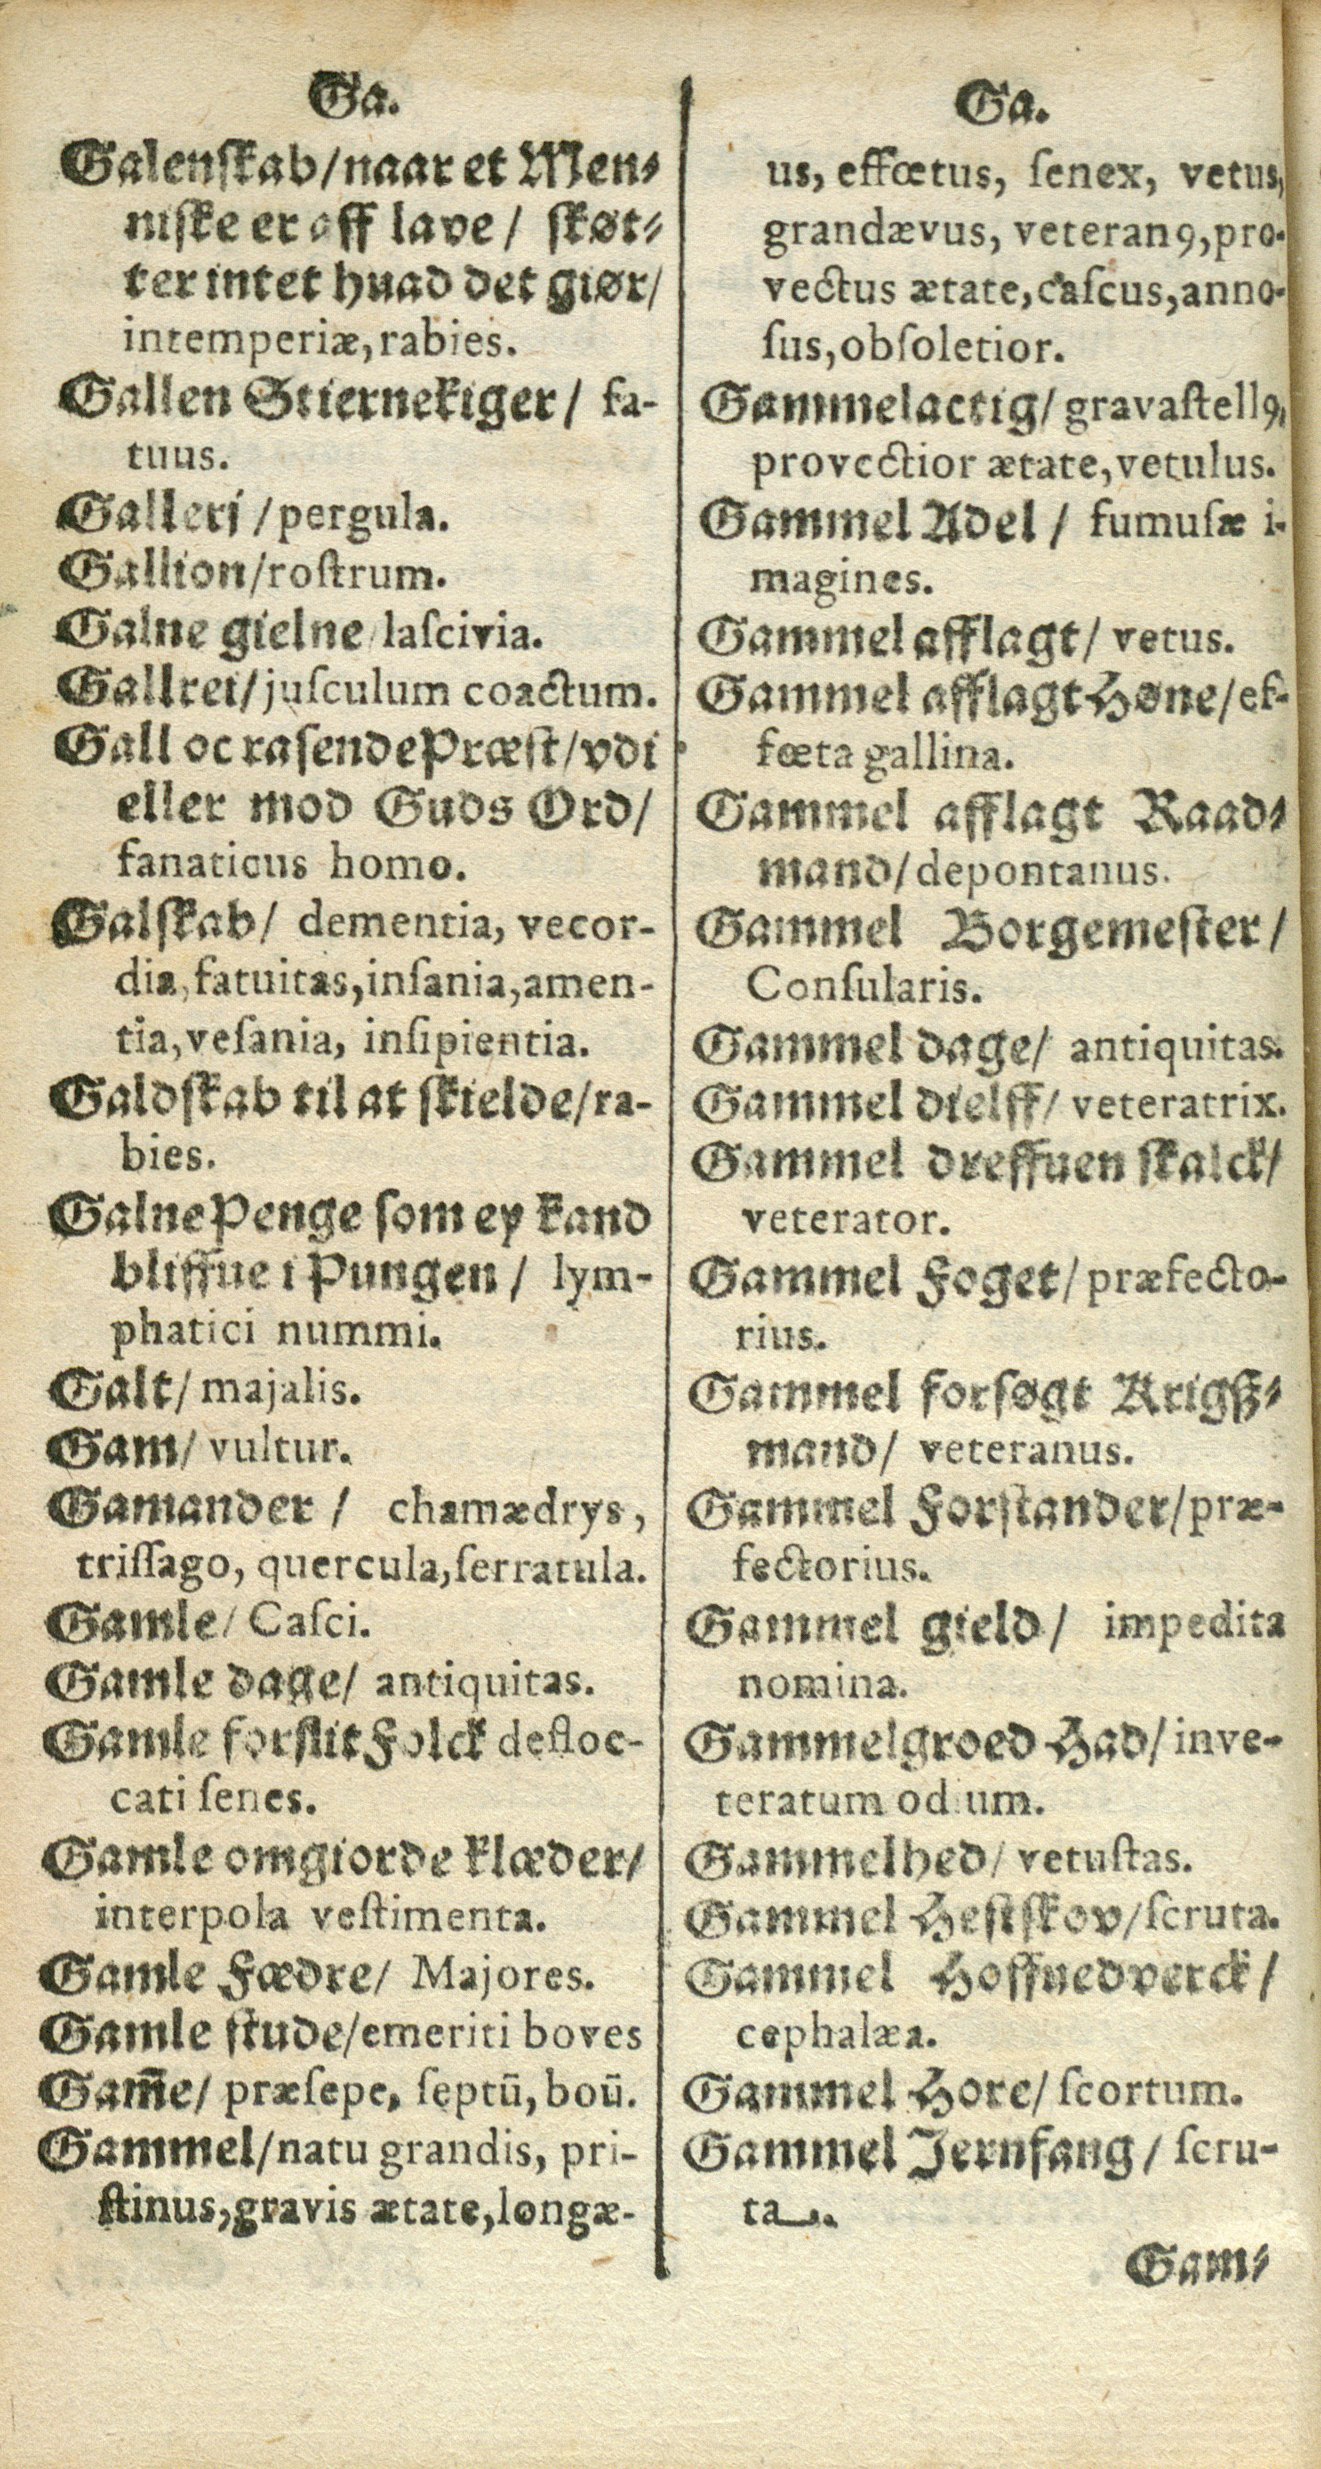 Ga.
Galenſkab/naar et Men⸗
niſke er aff lave / ſkøt⸗
ter intet huad det giør/
intemperiæ, rabies.
Gallen Stiernekiger / fa-
tuus.
Gallerj /pergula.
Gallion/roſtrum.
Galne gielne/laſcivia.
Gallrei/juſculum coactum.
Gall oc raſende Præſt/vdi
eller mod Guds Ord/
fanaticus homo.
Galſkab/ dementia, vecor-
dia, fatuitas, inſania, amen-
tia, veſania, inſipientia.
Galdſkab til at ſkielde/ra-
bies.
Galne Penge ſom ey kand
bliffue i Pungen / lym-
phatici nummi.
Galt/ majalis.
Gam/ vultur.
Gamander / chamædrys,
triſſago, quercula, ſerratula.
Gamle/ Caſci.
Gamle dage/ antiquitas.
Gamle forſlit Folck defloc-
cati ſenes.
Gamle omgiorde klæder/
interpola veſtimenta.
Gamle Fædre/ Majores.
Gamle ſtude/emeriti boves
Gam̄e/ præſepe, ſeptū, boū.
Gammel/natu grandis, pri-
ſtinus, gravis ætate, longæ-
Ga.
us, effœtus, ſenex, vetus,
grandævus, veteranꝰ, pro-
vectus ætate, caſcus, anno-
ſus, obſoletior.
Gammelactig/ gravaſtellꝰ,
provectior ætate, vetulus.
Gammel Adel / fumuſæ i-
magines.
Gammel afflagt/ vetus.
Gammel afflagt Høne/ef-
fœta gallina.
Gammel afflagt Raad⸗
mand/depontanus.
Gammel Borgemeſter/
Conſularis.
Gammel dage/ antiquitas.
Gammel dielff/ veteratrix.
Gammel dreffuen ſkalck/
veterator.
Gammel Foget/præfecto-
rius.
Gammel forſøgt Krigß⸗
mand/ veteranus.
Gammel Forſtander/præ-
fectorius.
Gammel gield/ impedita
nomina.
Gammelgroed Had/inve-
teratum odium.
Gammelhed/ vetuſtas.
Gammel Heſtſkov/ſcruta.
Gammel Hoffuedverck/
cephalæa.
Gammel Hore/ ſcortum.
Gammel Jernfang/ ſcru-
ta.
Gam⸗